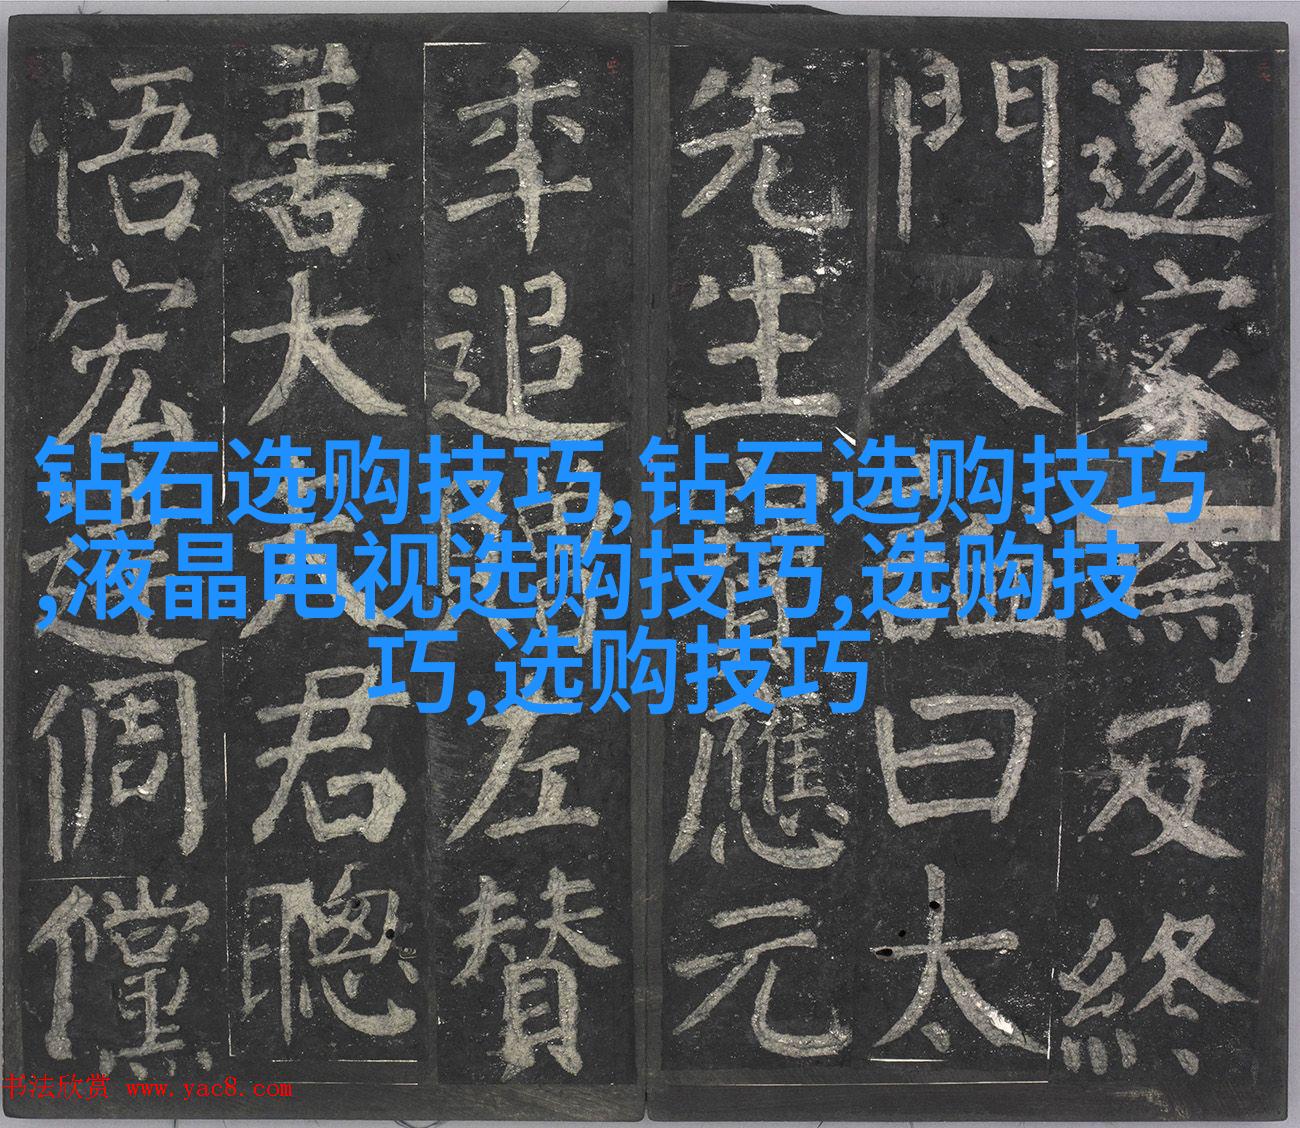 遂家焉及終
門人謚曰太
先生寶應元
年追贈左贊
善大夫君聰
悟宏達倜儻
钻石选购技巧,钻石选购技巧
,液晶电视选购技巧,选购技
巧,选购技巧
书法欣赏 www.yac8.com